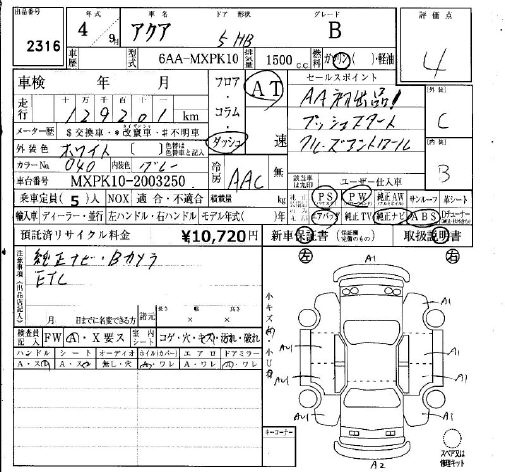 出品番号 年式 車名 ドア 形状 グレード 評価点
2316 4年 9月 アクア 5 HB B 4
車歴 型式 6AA-MXPK10 排気量 1500 C.C. 燃料 ガソリン・( )・軽油
車検 年 月 フロア・コラム・ダッシュ AT 速 セールスポイント
走行 十万 万 千 百 十 一
129201 km
AA初出品!
プッシュスタート
クルーズコントロール
外装 C
内装 B
メーター歴 $交換車・*改竄車・#不明車
外装色 ホワイト 色替は色替車と記入
カラーNo. 040 内装色 グレー
車台番号 MXPK10-2003250 冷房 AAC 無
ユーザー仕入車
乗車定員(5)人 NOX 適合・不適合 積載量 kg
PS PW 純正AW サンルーフ 革シート
エアバッグ 純正TV 純正ナビ ABS
輸入車 ディーラー・並行 左ハンドル・右ハンドル モデル年式( )年
預託済リサイクル料金 ¥10,720円 新車保証書 取扱説明書
注意事項(出品店記入)
純正ナビ・Bカメラ
ETC
月 日までに名変できる方 諸元 長さ 幅 高さ
検査員記入 FW A・X要ス 室内シート コゲ・穴・キズ・汚れ・破れ
ハンドル シート オーディオ ホイル(カバー) エアロ ドアミラー
A・ス A・ス 無し・穴 A・ワレ A・ワレ A・ワレ
左 右
小キズ 小U有
A1
A1
AU1 A1
AU1 A1
A1
A2
キーコーナー
スペア又は修理キット